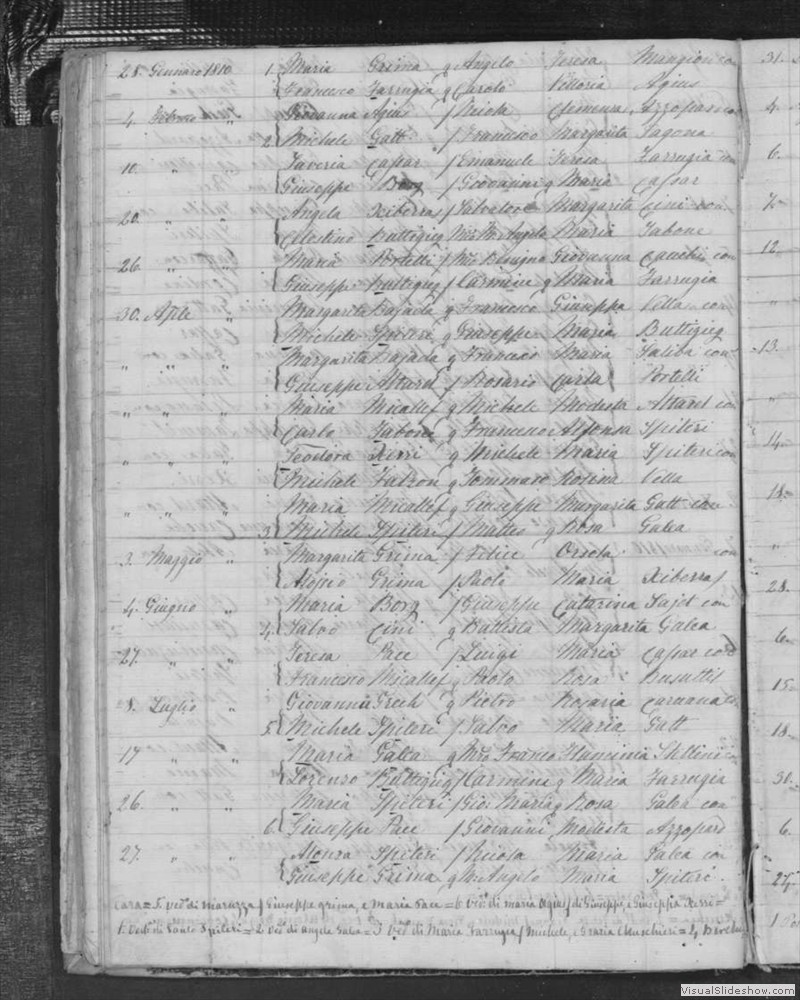 28. Gennaro 1810 1. Maria Grima q Angelo Teresa Mangion con
Francesco Farrugia q Carolo Vittoria Agius
4. Febraro " Giovanna Agius / Nicola Clemenza Azzopardi con
2 Michele Gatt / Francesco Margarita Tagona
10. " Saveria Caspar / Emanuele Teresa Farrugia con
Giuseppe Borg / Giovanni q Maria Caspar
20. " " Angela Xiberras / Salvatore Margarita Cini con
Celestino Buttigieg Angelo Maria Tabone
26. " " Maria Portelli / Benigno Giovanna con
Giuseppe Buttigieg / Carmine q Maria Farrugia
30. Aple " Margarita Bajada q Francesco Giuseppa Vella con
Michele Spiteri q Giuseppe Maria Buttigieg
" " " Margarita Bajada q Francesco Maria Saliba con
Giuseppe Attard / Rosario Carla Portelli
" " " Maria Micallef q Michele Modesta Attard con
Carlo Tabone q Francesco Alfonsa Spiteri
" " " Teodora Xerri q Michele Maria Spiteri con
Michele Falzon q Tommaso Rosina Vella
" " " Maria Micallef q Giuseppe Margarita Gatt con
3 Michele Spiteri / Matteo q Rosa Galea
3. Maggio " Margarita Grima / Felice Orsola con
Aloisio Grima / Paolo Maria Xiberras
4. Giugno " Maria Borg / Giuseppe Catarina Sajet con
4. Salvo Cini q Battista Margarita Galea
27. " " Teresa Pace / Luigi Maria Caspar con
Francesco Micallef q Paolo Rosa Busuttil
8. Luglio " Giovanna Grech q Pietro Rosaria Caruana
5 Michele Spiteri / Salvo Maria Gatt
17 " " Maria Galea q Franco Flaminia con
Lorenzo Buttigieg / Carmine q Maria Farrugia
26. " " Maria Spiteri / Gio: Maria q Rosa Galea con
6. Giuseppe Pace / Giovanni Modesta Azzopard
27. " " Alonza Spiteri / Nicola Maria Galea con
Giuseppe Grima q Angelo Maria Spiteri
Cara = 5 ved: di maruzza / Giuseppe grima, e Maria Pace = 6 ved: di maria Agius / di Giuseppe, e Giuseppa Xerri =
Spiteri = 2 ved: di angela Galea = 3 ved: di Maria Farrugia / Michele, e Grazia = 4
31.
4.
6.
7.
12
"
13.
"
14.
18.
"
28.
6.
15
18.
30.
6.
27.
1
VisualSlideshow.com